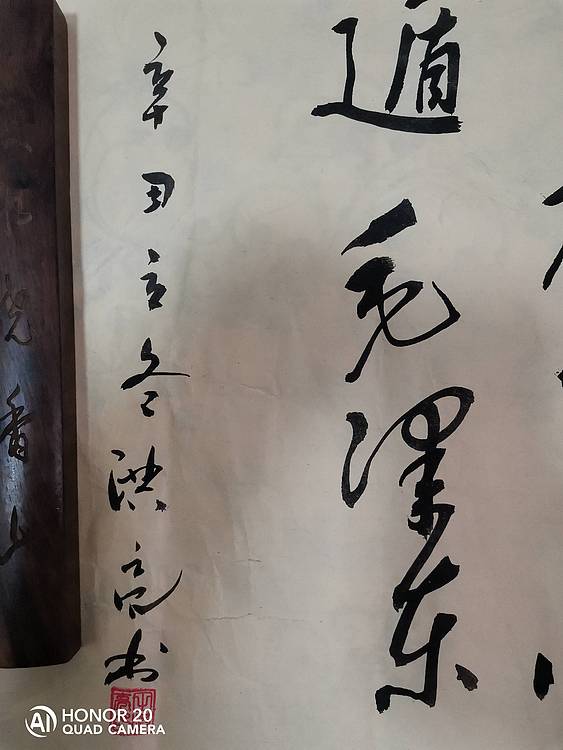 遁毛泽东
辛丑立冬洪亮书
香
AI HONOR 20
QUAD CAMERA